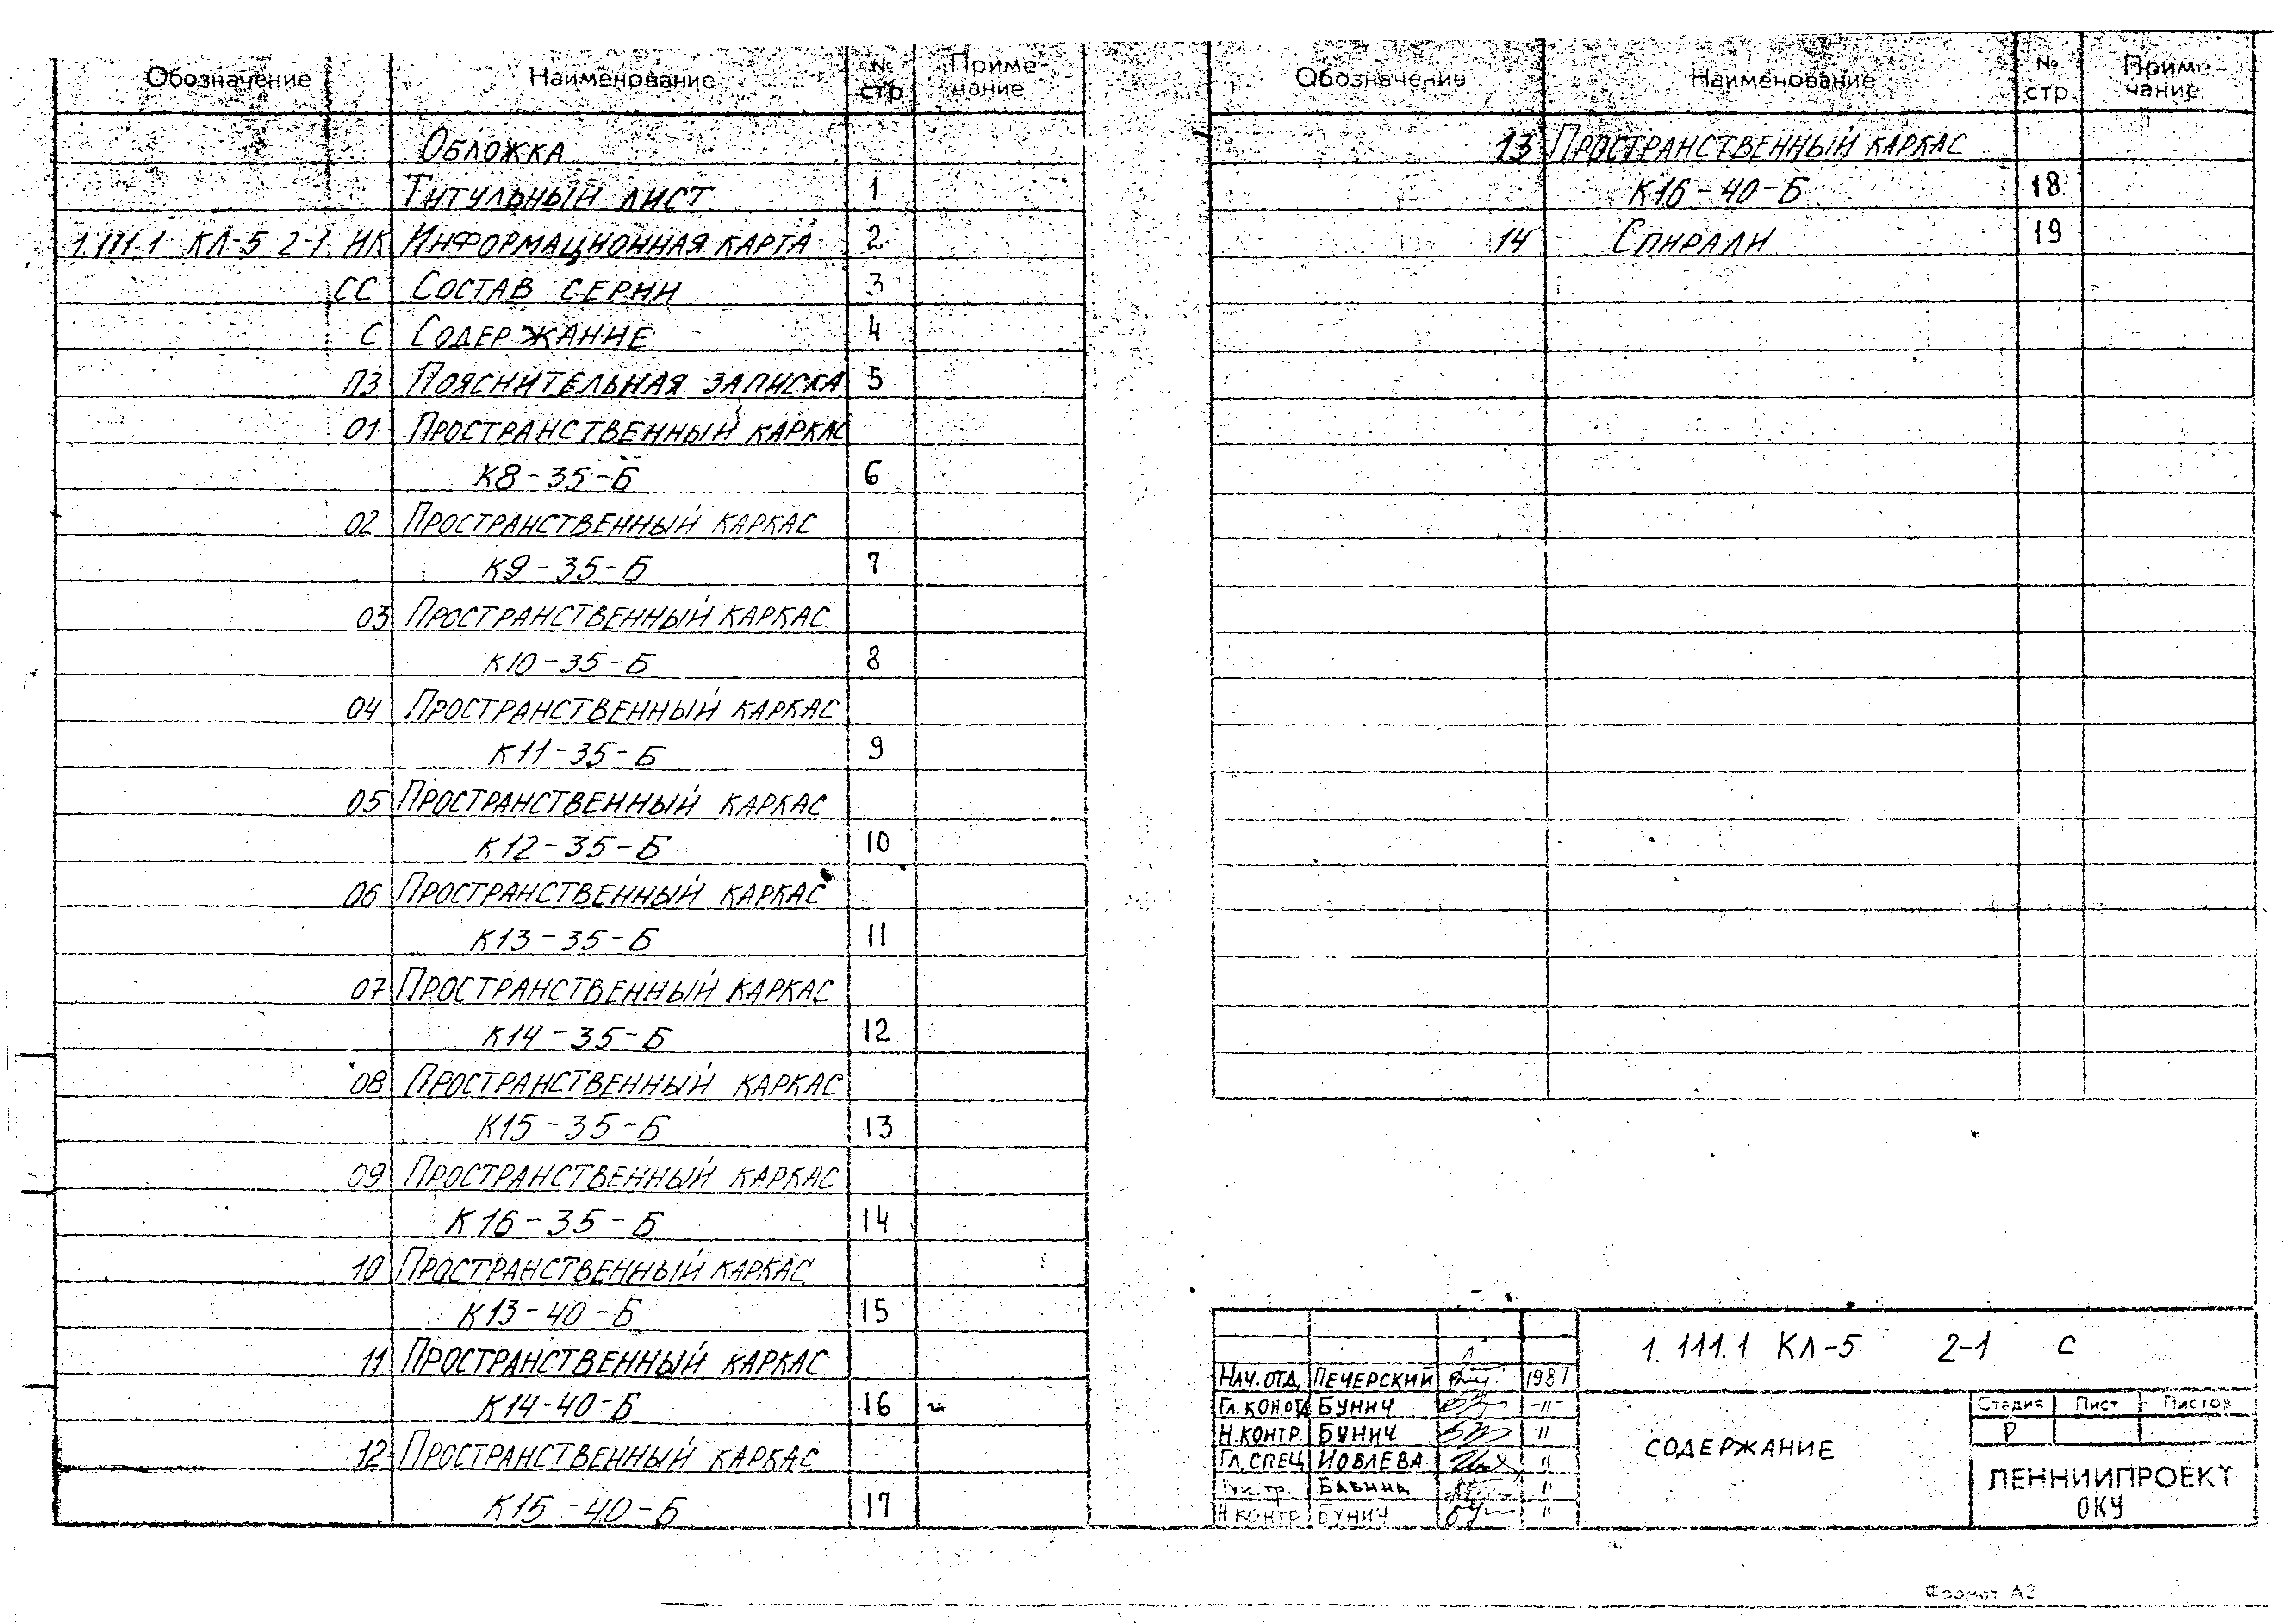 Обозначение Наименование № стр Приме-чание
Обложка
Титульный лист 1
1.111.1 КЛ-5 2-1. ИК Информационная карта 2
СС Состав серии 3
С Содержание 4
ПЗ Пояснительная записка 5
01 Пространственный каркас
К8-35-Б 6
02 Пространственный каркас
К9-35-Б 7
03 Пространственный каркас
К10-35-Б 8
04 Пространственный каркас
К11-35-Б 9
05 Пространственный каркас
К12-35-Б 10
06 Пространственный каркас
К13-35-Б 11
07 Пространственный каркас
К14-35-Б 12
08 Пространственный каркас
К15-35-Б 13
09 Пространственный каркас
К16-35-Б 14
10 Пространственный каркас
К13-40-Б 15
11 Пространственный каркас
К14-40-Б 16
12 Пространственный каркас
К15-40-Б 17
Обозначение Наименование № стр. Приме-чание
13 Пространственный каркас
К16-40-Б 18
14 Спирали 19
1.111.1 КЛ-5 2-1 С
Нач. отд. Печерский
Гл. Бунич -"-
Н.контр. Бунич "
Гл. спец Иовлева "
"
Н контр Бунич "
СОДЕРЖАНИЕ
Стадия Лист Листов
Р
ЛЕННИИПРОЕКТ
ОКУ
Формат А2